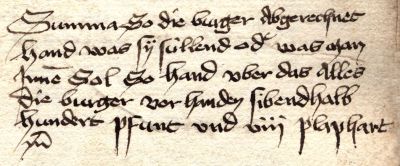 Summa So die burger Abgerechnet
hand was sÿ süllend od' was man
Jnnē Sol So hand vber das Alles
die burger vor handen sibendhalb
hundert pfunt vnd viij plaphart